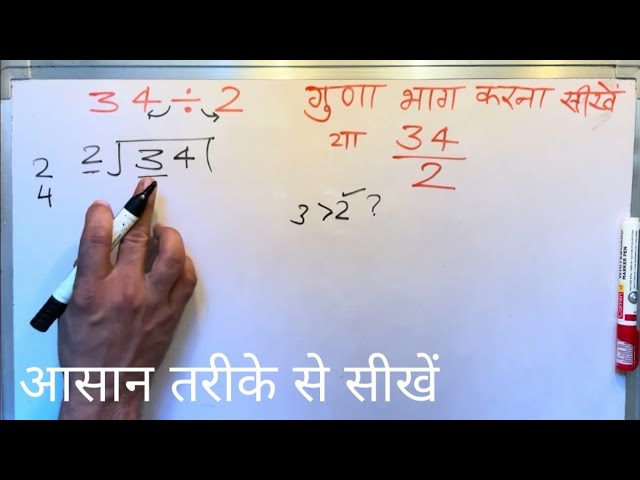 34 ÷ 2
गुणा भाग करना सीखें
या 34/2
2
4
2 ) 34 (
3 > 2 ✓ ?
आसान तरीके से सीखें